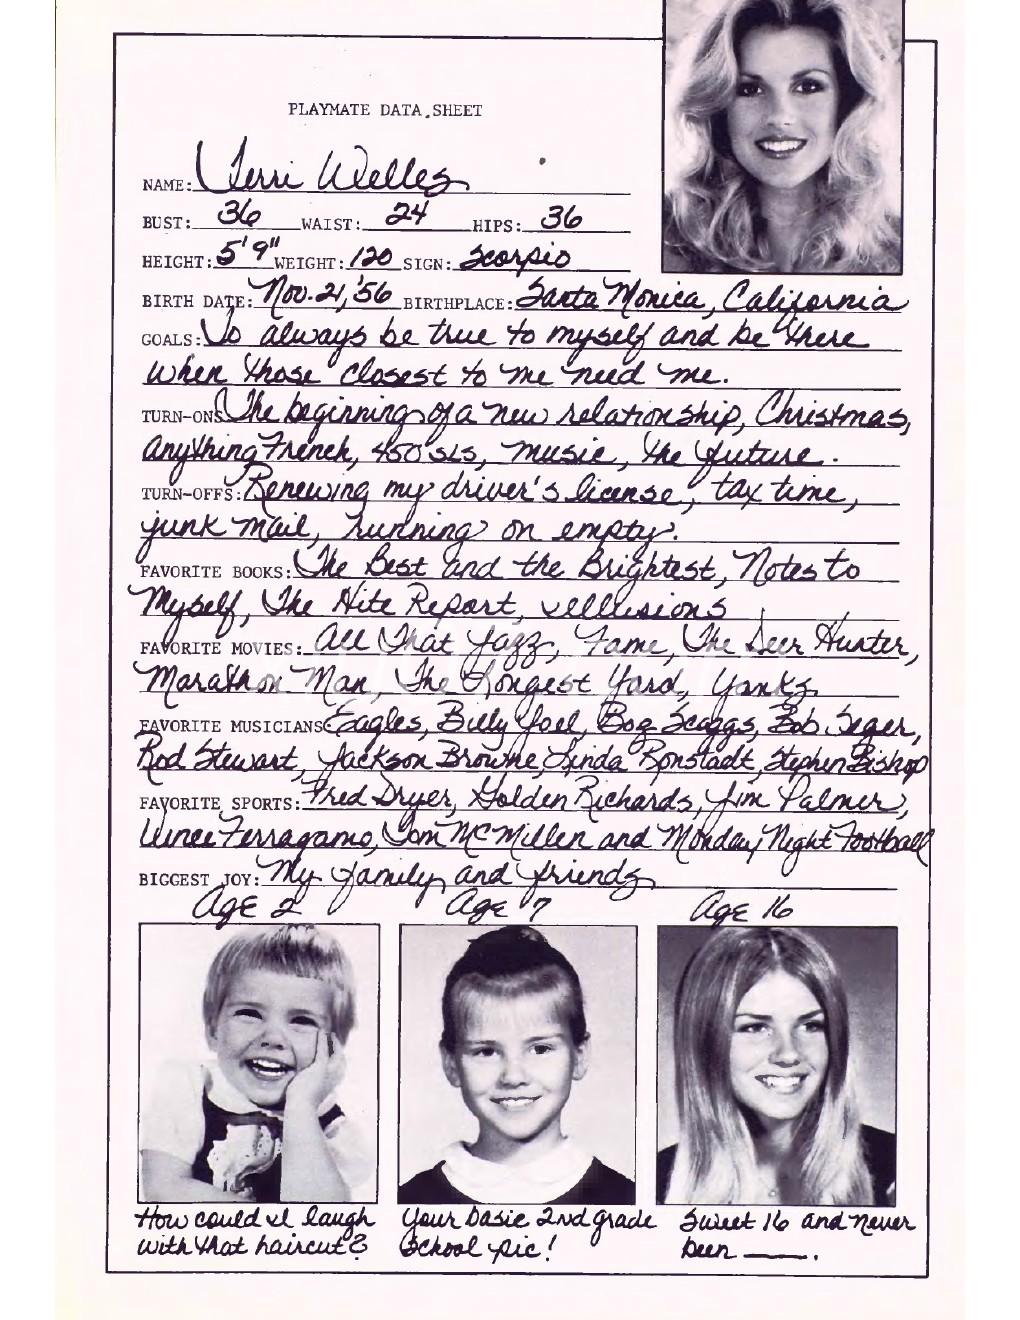 PLAYMATE DATA SHEET
NAME: Terri Welles
BUST: 36 WAIST: 24 HIPS: 36
HEIGHT: 5'9" WEIGHT: 120 SIGN: Scorpio
BIRTH DATE: Nov. 21, '56 BIRTHPLACE: Santa Monica, California
GOALS: To always be true to myself and be there
when those closest to me need me.
TURN-ONS: The beginning of a new relationship, Christmas,
anything French, 450 SLS, music, the future.
TURN-OFFS: Renewing my driver's license, tax time,
junk mail, running on empty.
FAVORITE BOOKS: The Best and the Brightest, Notes to
Myself, The Hite Report, Illusions
FAVORITE MOVIES: All That Jazz, Fame, The Deer Hunter,
Marathon Man, The Longest Yard, Yanks
FAVORITE MUSICIANS: Eagles, Billy Joel, Boz Scaggs, Bob Seger,
Rod Stewart, Jackson Browne, Linda Ronstadt, Stephen Bishop
FAVORITE SPORTS: Fred Dryer, Golden Richards, Jim Palmer,
Vince Ferragamo, Tom McMillen and Monday Night Football
BIGGEST JOY: My family and friends
Age 2 Age 7 Age 16
How could I laugh
with that haircut?
Your basic 2nd grade
School pic!
Sweet 16 and never
been ____.